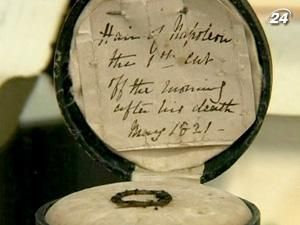 24
Hair of Napoleon
the 1st cut
off the morning
after his death
May 1821 -